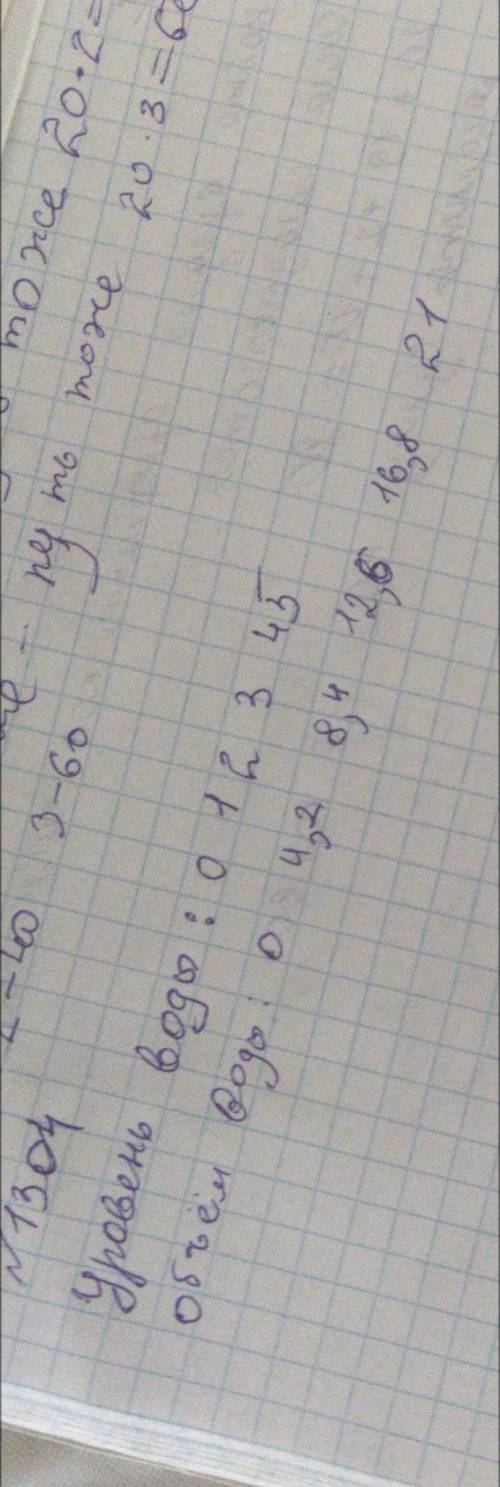 тоже 20·2=
- путь тоже 20·3=60
2-40 3-60
№1304
Уровень воды: 0 1 2 3 4 5
Объём воды: 0 4,2 8,4 12,6 16,8 21